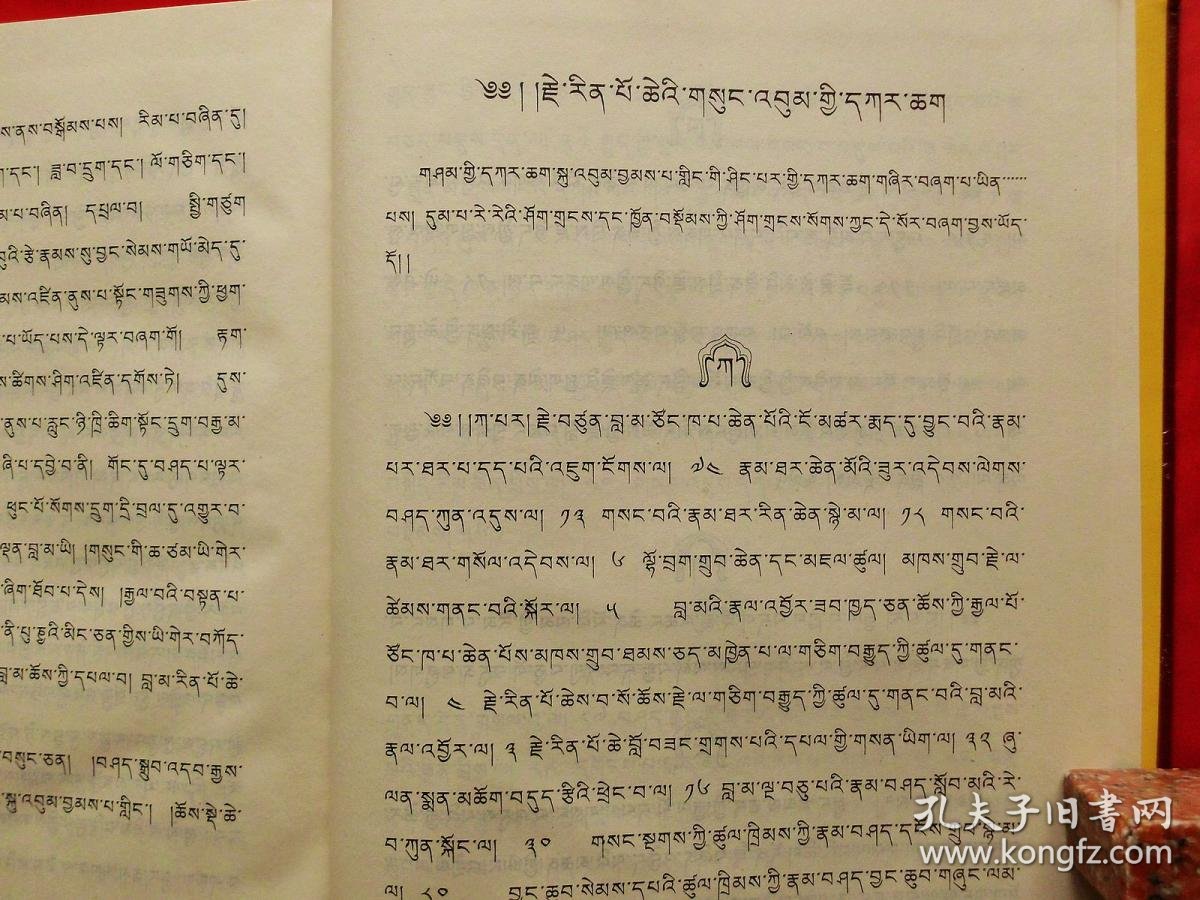 ས་ནས་བསྒོམས་པས། རིམ་པ་བཞིན་དུ།
ག་དང་། ཟླ་བ་དྲུག་དང་། ལོ་གཅིག་དང་།
མ་པ་བཞིན། དཔྲལ་བ། སྤྱི་གཙུག
བུའི་རྩེ་རྣམས་སུ་བྱང་སེམས་གཡོ་མེད་དུ་
མས་འཛིན་ནུས་པ་སྟོང་གཟུགས་ཀྱི་ཕྱག་
པ་ཡོད་པས་དེ་ལྟར་བཞག་གོ། རྟག་
ས་ཚིགས་ཤིག་འཛིན་དགོས་ཏེ། དུས་
ནུས་པ་རླུང་ཉི་ཁྲི་ཆིག་སྟོང་དྲུག་བརྒྱ་མ་
ཞི་པ་དབྱེ་བ་ནི། གོང་དུ་བཤད་པ་ལྟར་
ཕུང་པོ་སོགས་དྲུག་དྲི་བྲལ་དུ་འགྱུར་བ་
ལྡན་བླ་མ་ཡི། །གསུང་གི་ཆ་ཙམ་ཡི་གེར་
ཞིག་ཐོབ་པ་དེས། །རྒྱལ་བའི་བསྟན་པ་
ནི་པུ་ཎྱའི་མིང་ཅན་གྱིས་ཡི་གེར་བཀོད་
བླ་མ་ཆོས་ཀྱི་དཔལ་བ། བླ་མ་རིན་པོ་ཆེ་
བསུང་ཅན། །བཤད་སྒྲུབ་འདབ་རྒྱས་
སྐུ་འབུམ་བྱམས་པ་གླིང་། །ཆོས་སྡེ་ཆེ་
༄༅། །རྗེ་རིན་པོ་ཆེའི་གསུང་འབུམ་གྱི་དཀར་ཆག
གཤམ་གྱི་དཀར་ཆག་སྐུ་འབུམ་བྱམས་པ་གླིང་གི་ཤིང་པར་གྱི་དཀར་ཆག་གཞིར་བཞག་པ་ཡིན……
པས། དུམ་པ་རེ་རེའི་ཤོག་གྲངས་དང་ཁྱོན་བསྡོམས་ཀྱི་ཤོག་གྲངས་སོགས་ཀྱང་དེ་སོར་བཞག་བྱས་ཡོད་
དོ།།
ཀ
༄༅། །ཀ་པར། རྗེ་བཙུན་བླ་མ་ཙོང་ཁ་པ་ཆེན་པོའི་ངོ་མཚར་རྨད་དུ་བྱུང་བའི་རྣམ་
པར་ཐར་པ་དད་པའི་འཇུག་ངོགས་ལ། ༧༤ རྣམ་ཐར་ཆེན་མོའི་ཟུར་འདེབས་ལེགས་
བཤད་ཀུན་འདུས་ལ། ༡༣ གསང་བའི་རྣམ་ཐར་རིན་ཆེན་སྙེ་མ་ལ། ༡༨ གསང་བའི་
རྣམ་ཐར་གསོལ་འདེབས་ལ། ༦ ལྷོ་བྲག་གྲུབ་ཆེན་དང་མཇལ་ཚུལ། མཁས་གྲུབ་རྗེ་ལ་
ཚེམས་གནང་བའི་སྐོར་ལ། ༥ བླ་མའི་རྣལ་འབྱོར་ཟབ་ཁྱད་ཅན་ཆོས་ཀྱི་རྒྱལ་པོ་
ཙོང་ཁ་པ་ཆེན་པོས་མཁས་གྲུབ་ཐམས་ཅད་མཁྱེན་པ་ལ་གཅིག་བརྒྱུད་ཀྱི་ཚུལ་དུ་གནང་
བ་ལ། ༤ རྗེ་རིན་པོ་ཆེས་བ་སོ་ཆོས་རྗེ་ལ་གཅིག་བརྒྱུད་ཀྱི་ཚུལ་དུ་གནང་བའི་བླ་མའི་
རྣལ་འབྱོར་ལ། ༣ རྗེ་རིན་པོ་ཆེ་བློ་བཟང་གྲགས་པའི་དཔལ་གྱི་གསན་ཡིག་ལ། ༣༢ ཞུ་
ལན་སྨན་མཆོག་བདུད་རྩིའི་ཕྲེང་བ་ལ། ༡༦ བླ་མ་ལྔ་བཅུ་པའི་རྣམ་བཤད་སློབ་མའི་རེ་
བ་ཀུན་སྐོང་ལ། ༣༠ གསང་སྔགས་ཀྱི་ཚུལ་ཁྲིམས་ཀྱི་རྣམ་བཤད་དངོས་གྲུབ་སྙེ་མ་
ལ། ༨༠ བྱང་ཆུབ་སེམས་དཔའི་ཚུལ་ཁྲིམས་ཀྱི་རྣམ་བཤད་བྱང་ཆུབ་གཞུང་ལམ་
孔夫子旧書网
www.kongfz.com